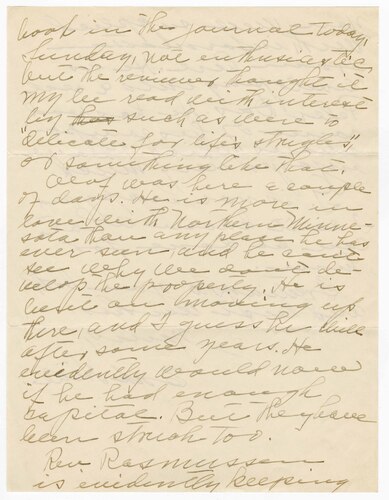 book in the Journal today,
Sunday, not enthusiastic,
but the reviewer thought it
my be read with interest
by ~~thos~~ such as were to
"delicate for life's strugles",
or something like that.
Olof was here a couple
of days. He is more in
love with Northern Minne-
sota than any place he has
ever seen, and he can't
see why we don't de-
velop the property. He is
bent on moving up
there, and I guess he will
after some years. He
evidently would now
if he had enough
capital. But they have
been struck too.
Rev Rasmussen
is evidently keeping